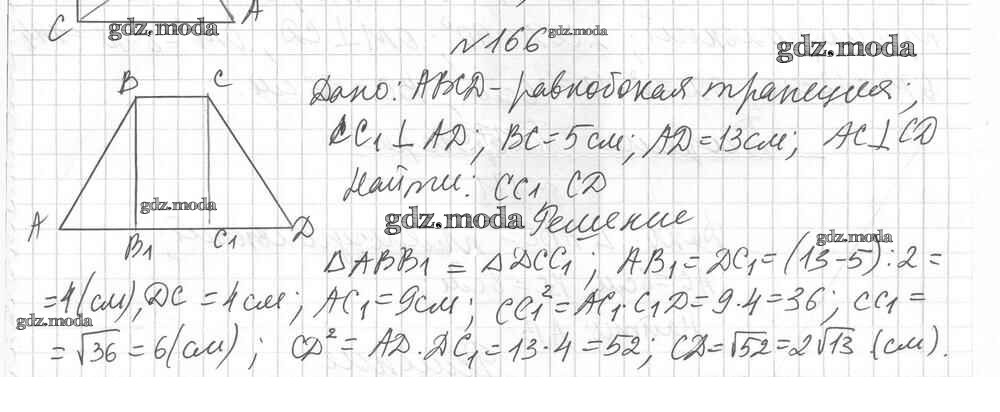 C A
gdz.moda
№166 gdz.moda
gdz.moda
B C
Дано: ABCD - равнобокая трапеция;
CC₁ ⊥ AD; BC = 5 см; AD = 13 см; AC ⊥ CD
Найти: CC₁ CD
gdz.moda
A B₁ C₁ D
gdz.moda Решение
gdz.moda
△ABB₁ = △DCC₁; AB₁ = DC₁ = (13-5):2 =
= 4 (см), DC = 4 см; AC₁ = 9 см; CC₁² = AC₁·C₁D = 9·4 = 36; CC₁ =
gdz.moda
= √36 = 6 (см); CD² = AD·DC₁ = 13·4 = 52; CD = √52 = 2√13 (см).